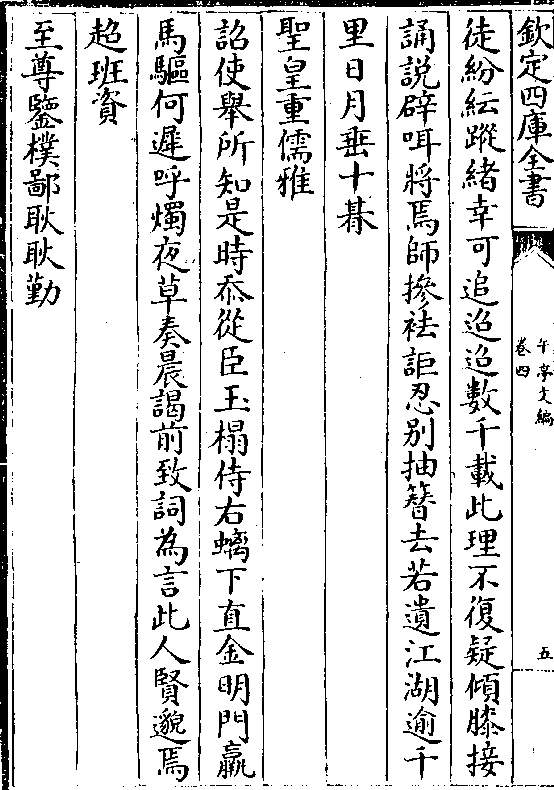 欽定四庫全書
午亭文編
卷四
五
徒紛紜蹤緒幸可追迢迢數千載此理不復疑傾膝接
誦說辟咡將焉師摻袪詎忍別抽簮去若遺江湖逾千
里日月垂十朞
聖皇重儒雅
詔使舉所知是時忝從臣玉榻侍右螭下直金明門羸
馬驅何遲呼燭夜草奏晨謁前致詞為言此人賢邈焉
超班資
至尊鑒樸鄙耿耿勤